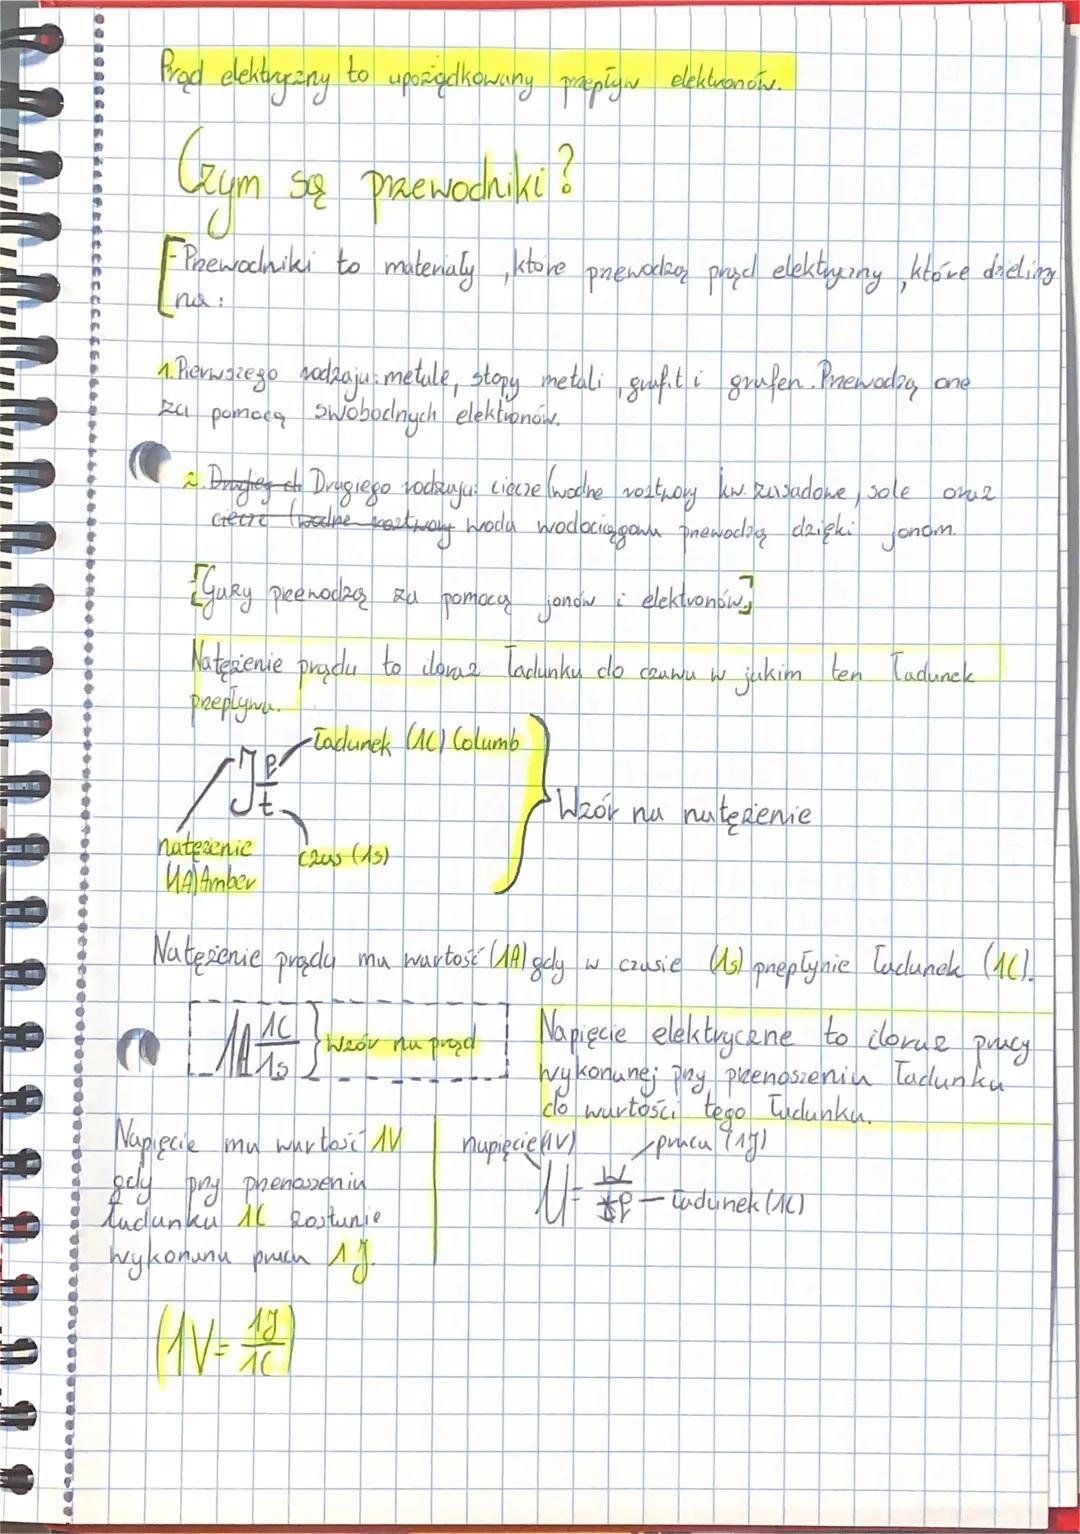 Prąd elektryczny to uporządkowany przepływ elektronów.
Czym są przewodniki?
-Przewodniki to materiały, które przewodzą prąd elektryczny, które dzielimy
na:
1.Pierwszego rodzaju: metale, stopy metali, grafit i grafen. Przewodzą one
za pomocą swobodnych elektronów.
2. Drugiego rodzaju: ciecze (wodne roztwory kw. zasadowe, sole oraz
ciecze (wodne roztwory woda wodociągowa przewodzą dzięki jonom.
[Gazy przewodzą za pomocą jonów i elektronów,]
Natężenie prądu to iloraz ładunku do czasu w jakim ten ładunek
przepływa.
ładunek (1C) Columb
J q
t
Wzór na natężenie
natężenie
(1A) Amber
czas (1s)
Natężenie prądu ma wartość (1A) gdy w czasie (1s) przepłynie ładunek (1C).
1A 1C
1s
Wzór na prąd
Napięcie elektryczne to iloraz pracy
wykonanej przy przenoszeniu ładunku
do wartości tego ładunku.
Napięcie ma wartość 1V
gdy przy przenoszeniu
ładunku 1C zostanie
wykonana praca 1J.
napięcie (1V)
praca (1J)
U = W
q — ładunek (1C)
(1V = 1J
1C)